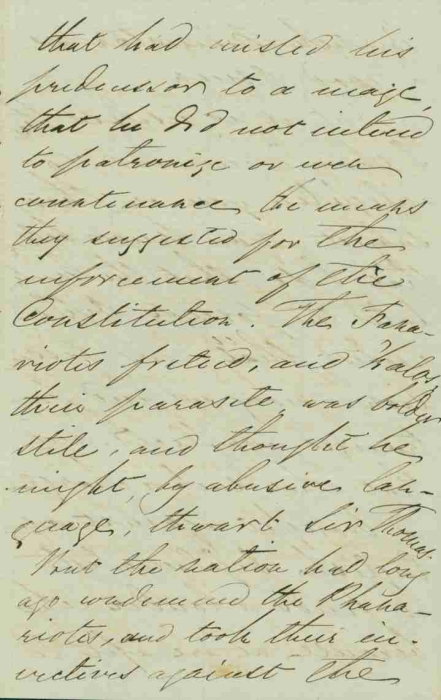 that had misled his
predecessor to a maze,
that he did not intend
to patronize or even
countenance the means
they suggested for the
enforcement of the
Constitution. The Fana-
riotes fretted, and Kalos,
their parasite was bolder
still, and thought he
might, by abusive lan-
guage, thwart Sir Thomas.
But the nation had long
ago condemned the Phana-
riotes, and took their in-
vectives against the